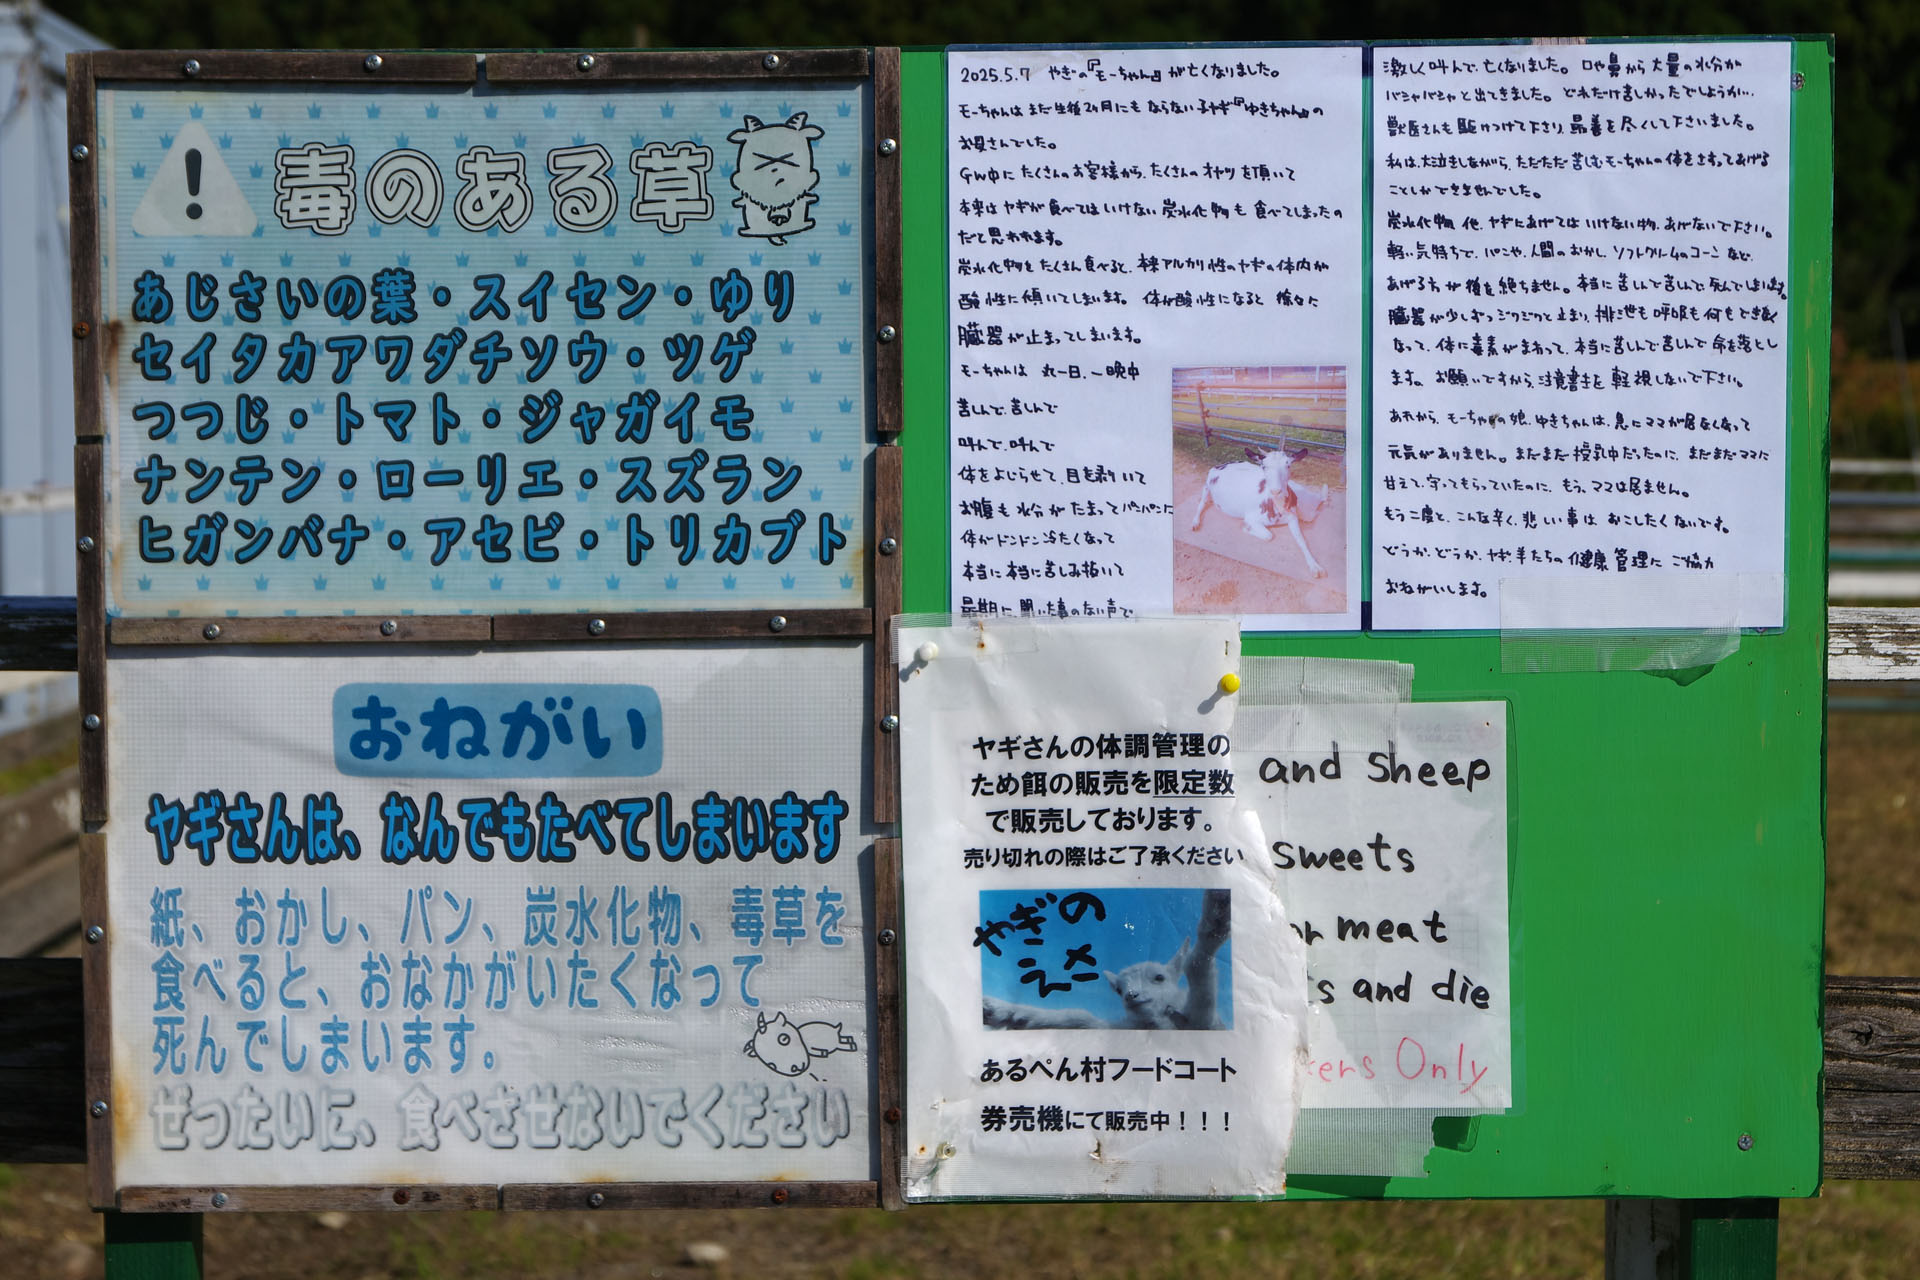 !
毒のある草
あじさいの葉・スイセン・ゆり
セイタカアワダチソウ・ツゲ
つつじ・トマト・ジャガイモ
ナンテン・ローリエ・スズラン
ヒガンバナ・アセビ・トリカブト
おねがい
ヤギさんは、なんでもたべてしまいます
紙、おかし、パン、炭水化物、毒草を
食べると、おなかがいたくなって
死んでしまいます。
ぜったいに、食べさせないでください
2025.5.7 やぎの『モーちゃん』が亡くなりました。
モーちゃんはまだ生後2ヶ月にもならない子ヤギ『ゆきちゃん』の
お母さんでした。
GW中にたくさんのお客様から、たくさんのオヤツを頂いて
本来はヤギが食べてはいけない炭水化物も食べてしまったの
だと思われます。
炭水化物をたくさん食べると、本来アルカリ性のヤギの体内が
酸性に傾いてしまいます。体が酸性になると徐々に
臓器が止まってしまいます。
モーちゃんは丸一日、一晩中
苦しんで、苦しんで
叫んで、叫んで
体をよじらせて、目を剥いて
お腹も水分がたまってパンパンに
体がドンドン冷たくなって
本当に本当に苦しみ抜いて
最期に聞いた事のない声で
激しく叫んで、亡くなりました。口や鼻から大量の水分が
バシャバシャと出てきました。どれだけ苦しかったでしょうか…
獣医さんも駆けつけて下さり、最善を尽くして下さいました。
私は、大泣きしながら、ただただ苦しむモーちゃんの体をさすってあげる
ことしかできませんでした。
炭水化物、他、ヤギにあげてはいけない物、あげないで下さい。
軽い気持ちで、パンや、人間のおかし、ソフトクリームのコーンなど、
あげる方が後を絶ちません。本当に苦しんで苦しんで死んでしまいます。
臓器が少しずつジワジワと止まり、排泄も呼吸も何もできなく
なって、体に毒素がまわって、本当に苦しんで苦しんで命を落とし
ます。お願いですから、注意書きを軽視しないで下さい。
あれから、モーちゃんの娘、ゆきちゃんは、急にママが居なくなって
元気がありません。まだまだ授乳中だったのに、まだまだママに
甘えて、守ってもらっていたのに、もう、ママは居ません。
もう二度と、こんな辛く、悲しい事は、おこしたくないです。
どうか、どうか、ヤギ、羊たちの健康管理にご協力
おねがいします。
ヤギさんの体調管理の
ため餌の販売を限定数
で販売しております。
売り切れの際はご了承ください
やぎの
えさ
あるぺん村フードコート
券売機にて販売中！！！
and Sheep
sweets
meat
and die
Only